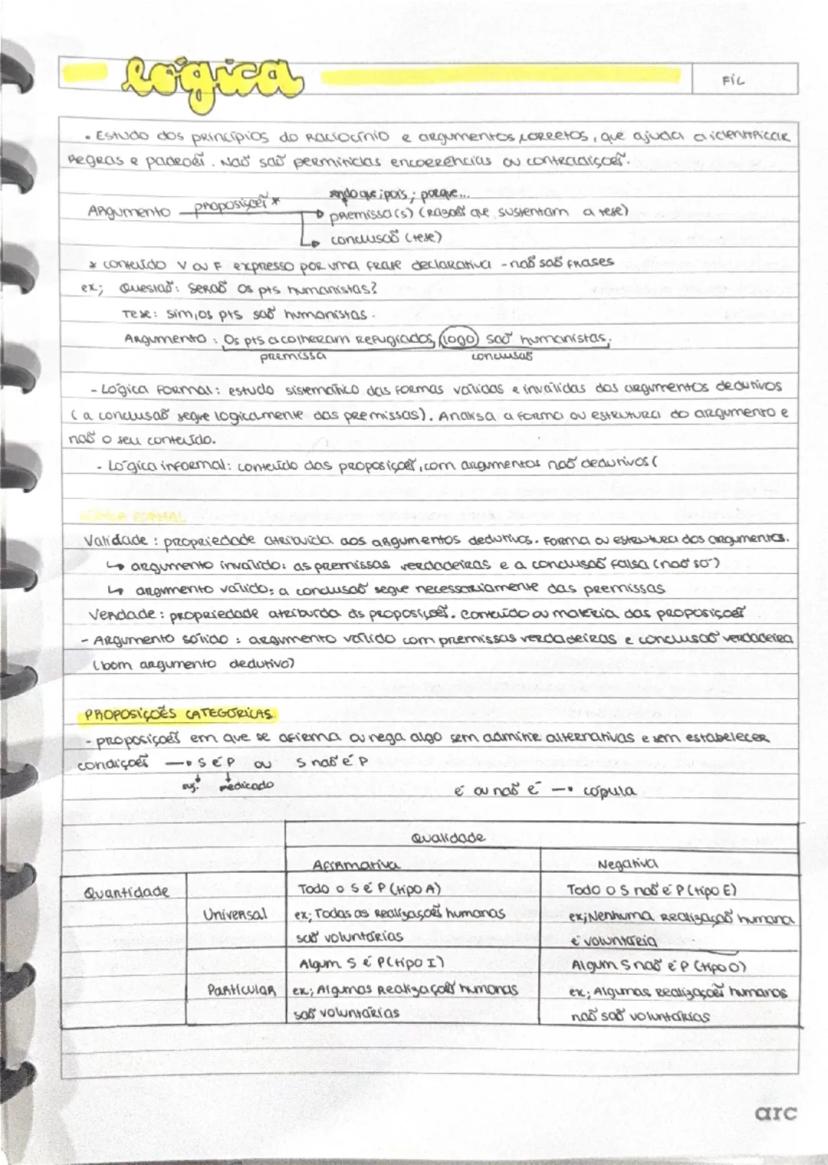 lógica
FIL
• Estudo dos princípios do raciocínio e argumentos corretos, que ajuda a identificar
regras e padrões. Não são permitidas encoerências ou contradições.
sendo que; pois; porque...
Argumento proposições* premissa(s) (razões que sustentam a tese)
conclusão (tese)
* conteúdo V ou F expresso por uma frase declarativa - não são frases
ex; Questão: Serão os pts humanistas?
Tese: sim, os pts são humanistas.
Argumento: Os pts acolheram refugiados, logo são humanistas.
premissa conclusão
- Lógica formal: estudo sistemático das formas válidas e inválidas dos argumentos dedutivos
(a conclusão segue logicamente das premissas). Analisa a forma ou estrutura do argumento e
não o seu conteúdo.
- Lógica informal: conteúdo das proposições, com argumentos não dedutivos (
LÓGICA FORMAL
Validade: propriedade atribuída aos argumentos dedutivos. Forma ou estrutura dos argumentos.
↳ argumento inválido: as premissas verdadeiras e a conclusão falsa (não só)
↳ argumento válido: a conclusão segue necessariamente das premissas
Verdade: propriedade atribuída às proposições. Conteúdo ou matéria das proposições
- Argumento sólido: argumento válido com premissas verdadeiras e conclusão verdadeira
(bom argumento dedutivo)
PROPOSIÇÕES CATEGÓRICAS
- proposições em que se afirma ou nega algo sem admitir alternativas e sem estabelecer
condições → S é P ou S não é P
suj. predicado é ou não é → cópula
Qualidade
Afirmativa Negativa
Quantidade Todo o S é P (tipo A) Todo o S não é P (tipo E)
Universal ex; Todas as realizações humanas ex; Nenhuma realização humana
são voluntárias é voluntária
Algum S é P (tipo I) Algum S não é P (tipo O)
Particular ex; Algumas realizações humanas ex; Algumas realizações humanas
são voluntárias não são voluntárias
arc